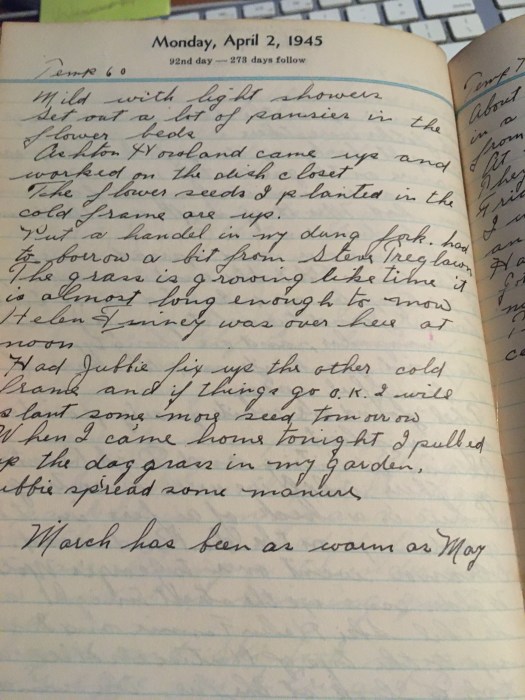 Monday, April 2, 1945
92nd day — 273 days follow
Temp 60
Mild with light showers
Set out a lot of pansies in the
flower beds
Ashton Howland came up and
worked on the dish closet
The flower seeds I planted in the
cold frame are up.
Put a handel in my dung fork. had
to borrow a bit from Steve Treglawn
The grass is growing like time it
is almost long enough to mow
Helen Finney was over here at
noon
Had Jubbie fix up the other cold
frame and if things go O.K. I will
plant some more seed tomorrow
When I came home tonight I pulled
up the dog grass in my garden,
ubbie spread some manure
March has been as warm as May
Temp 7
About
in a
from
At
They
I w
an